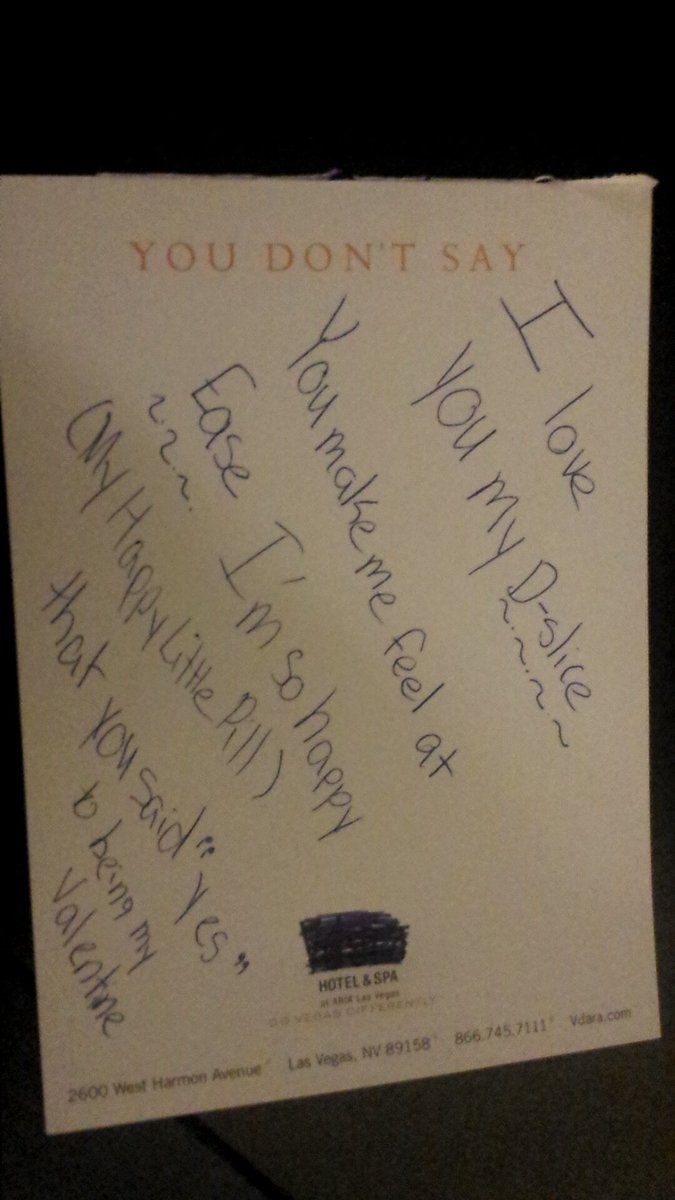 YOU DON'T SAY
I love
you my D-slice
You make me feel at
Ease I'm so happy
(My Happy Little Pill)
that you said "yes"
to being my
Valentine
HOTEL & SPA
at ARIA Las Vegas
GO VEGAS DIFFERENTLY
2600 West Harmon Avenue Las Vegas, NV 89158 866.745.7111 Vdara.com